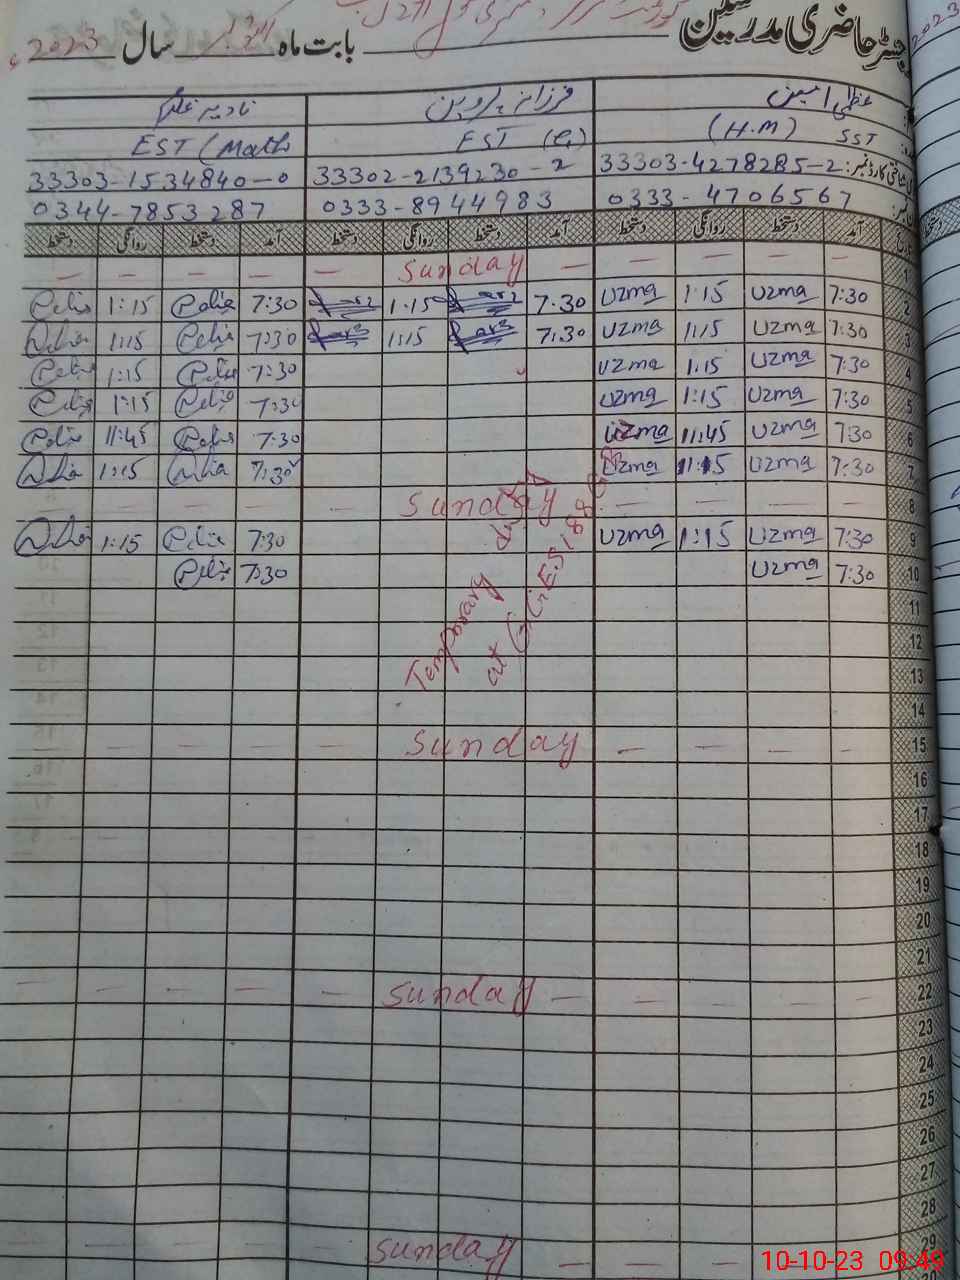 رجسٹر حاضری مدرسین بابت ماہ سال 2023ء
عظمیٰ امین فرزانہ پروین نادیہ
SST (H.M) EST (G) EST (Math
33303-4278285-2 33302-2139230-2 33303-1534840-0
0333-4706567 0333-8944983 0344-7853287
آمد دستخط روانگی دستخط آمد دستخط روانگی دستخط آمد دستخط روانگی دستخط
1 — — — — Sunday — — — — —
2 7:30 Uzma 1:15 Uzma 7:30 1:15 7:30 1:15
3 7:30 Uzma 1:15 Uzma 7:30 1:15 7:30 1:15
4 7:30 Uzma 1:15 Uzma 7:30 1:15
5 7:30 Uzma 1:15 Uzma 7:30 1:15
6 7:30 Uzma 11:45 Uzma 7:30 11:45
7 7:30 Uzma 1:15 Uzma 7:30 1:15
8 — — — Sunday
9 7:30 Uzma 1:15 Uzma 7:30 1:15
10 7:30 Uzma 7:30
Temporary duty
at G.G.E.S 188
11
12
13
14
15 — — — — Sunday — — — — —
16
17
18
19
20
21
22 — — — — — Sunday — — — — —
23
24
25
26
27
28
29 — — — — Sunday — — — — —
10-10-23 09:49
2023